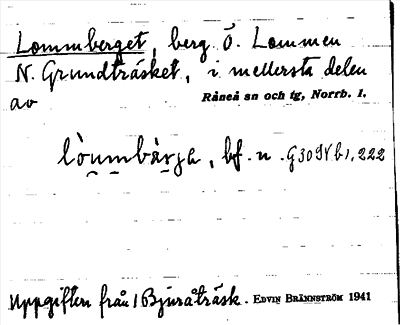 Lommberget, berg Ö. Lommen
N. Grundträsket, i mellersta delen
av Råneå sn och tg, Norrb. l.
lòu̯mbàr̯ja, bf. n. G309Vb1, 222
Uppgiften från 1 Bjuråträsk. EDVIN BRÄNNSTRÖM 1941